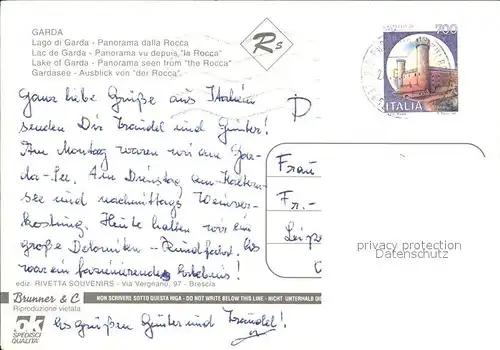 GARDA
Lago di Garda - Panorama dalla Rocca
Lac de Garda - Panorama vu depuis "la Rocca"
Lake of Garda - Panorama seen from "the Rocca"
Gardasee - Ausblick von "der Rocca".
Rs
700
ITALIA
Ganz liebe Grüße aus Italien
senden Dir Traudel und Günter!
Am Montag waren wir am Gar-
da-See. Am Dienstag am Kalterer-
see und nachmittags Weinver-
kostung. Heute hatten wir ein
große Dolomiten - Rundfahrt. Es
war ein faszinierendes Erlebnis!
D
Frau
Fr.-
Leip
privacy protection
Datenschutz
ediz. RIVETTA SOUVENIRS - Via Vergnano, 97 - Brescia
Brunner & C
NON SCRIVERE SOTTO QUESTA RIGA - DO NOT WRITE BELOW THIS LINE - NICHT UNTERHALB DI
Riproduzione vietata
OK
SPEDISCI
QUALITA'
Es grüßen Günter und Traudel!